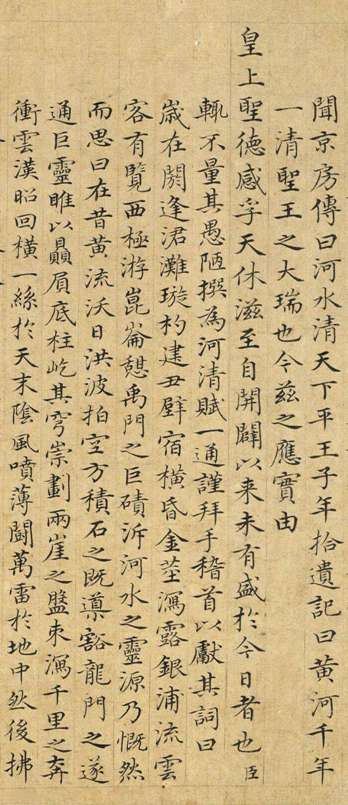 聞京房傳曰河水清天下平王子年拾遺記曰黃河千年
一清聖王之大瑞也今茲之應實由
皇上聖德感孚天休滋至自開闢以来未有盛於今日者也臣
輙不量其愚陋撰為河清賦一通謹拜手稽首以獻其詞曰
歲在閼逢涒灘璇杓建丑壁宿橫昏金莖瀉露銀浦流雲
客有覽西極游崑崙憩禹門之巨磧泝河水之靈源乃慨然
而思曰在昔黃流沃日洪波拍空方積石之既導豁龍門之遂
通巨靈雎以贔屓底柱屹其穹崇劃兩崖之盤束瀉千里之奔
衝雲漢昭回橫一絲於天末陰風噴薄鬭萬雷於地中然後拂